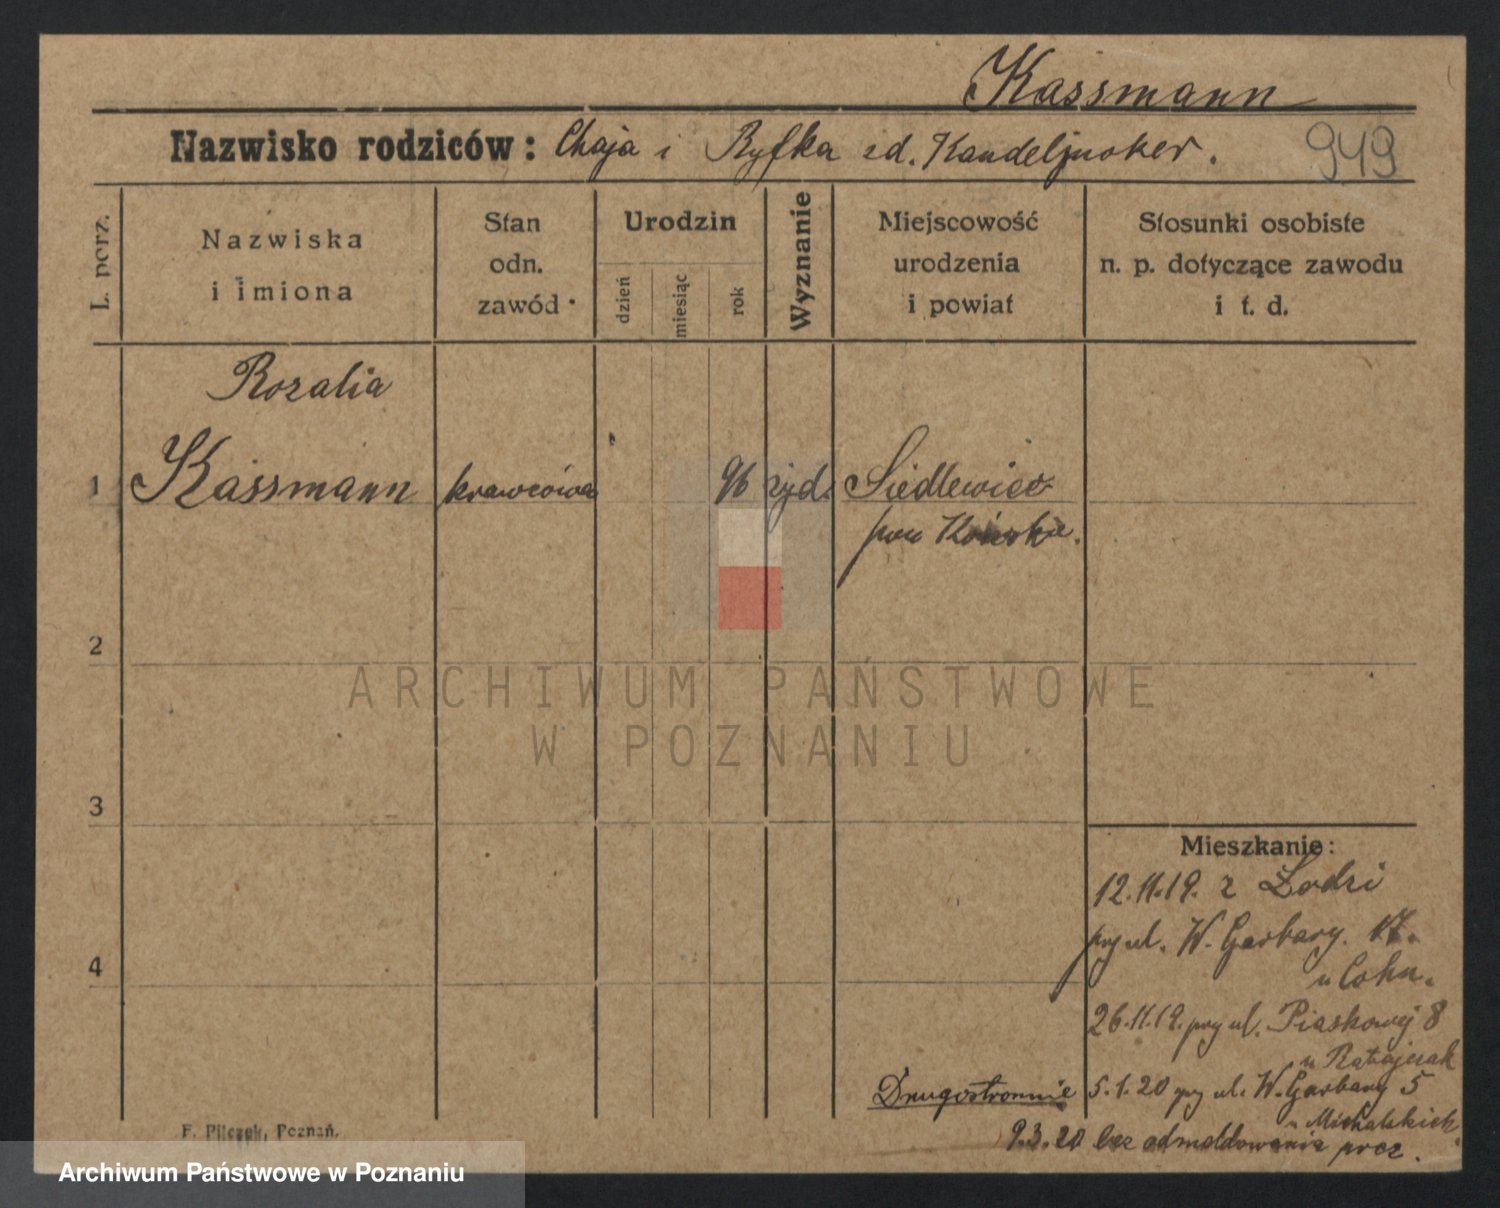 Kassmann
Nazwisko rodziców: Chaja i Ryfka zd.
949
L. porz.
Nazwiska
i imiona
Stan
odn.
zawód
Urodzin
dzień
miesiąc
rok
Wyznanie
Miejscowość
urodzenia
i powiat
Stosunki osobiste
n. p. dotyczące zawodu
i t. d.
Rozalia
1 Kassmann krawcowa 96 żyd. Siedlewice
pow Końskie.
2
ARCHIWUM PAŃSTWOWE
W POZNANIU
3
Mieszkanie:
12.11.19. z Łodzi
4
przy ul. W. Garbary. 17.
u Cohn.
26.11.19. przy ul. Piaskowej 8
u Ratajczak
Drugostronnie 5.1.20 przy ul. W. Garbary 5
u Michalskich
9.3.20 bez odmeldowania prez.
F. Pilczek, Poznań.
Archiwum Państwowe w Poznaniu